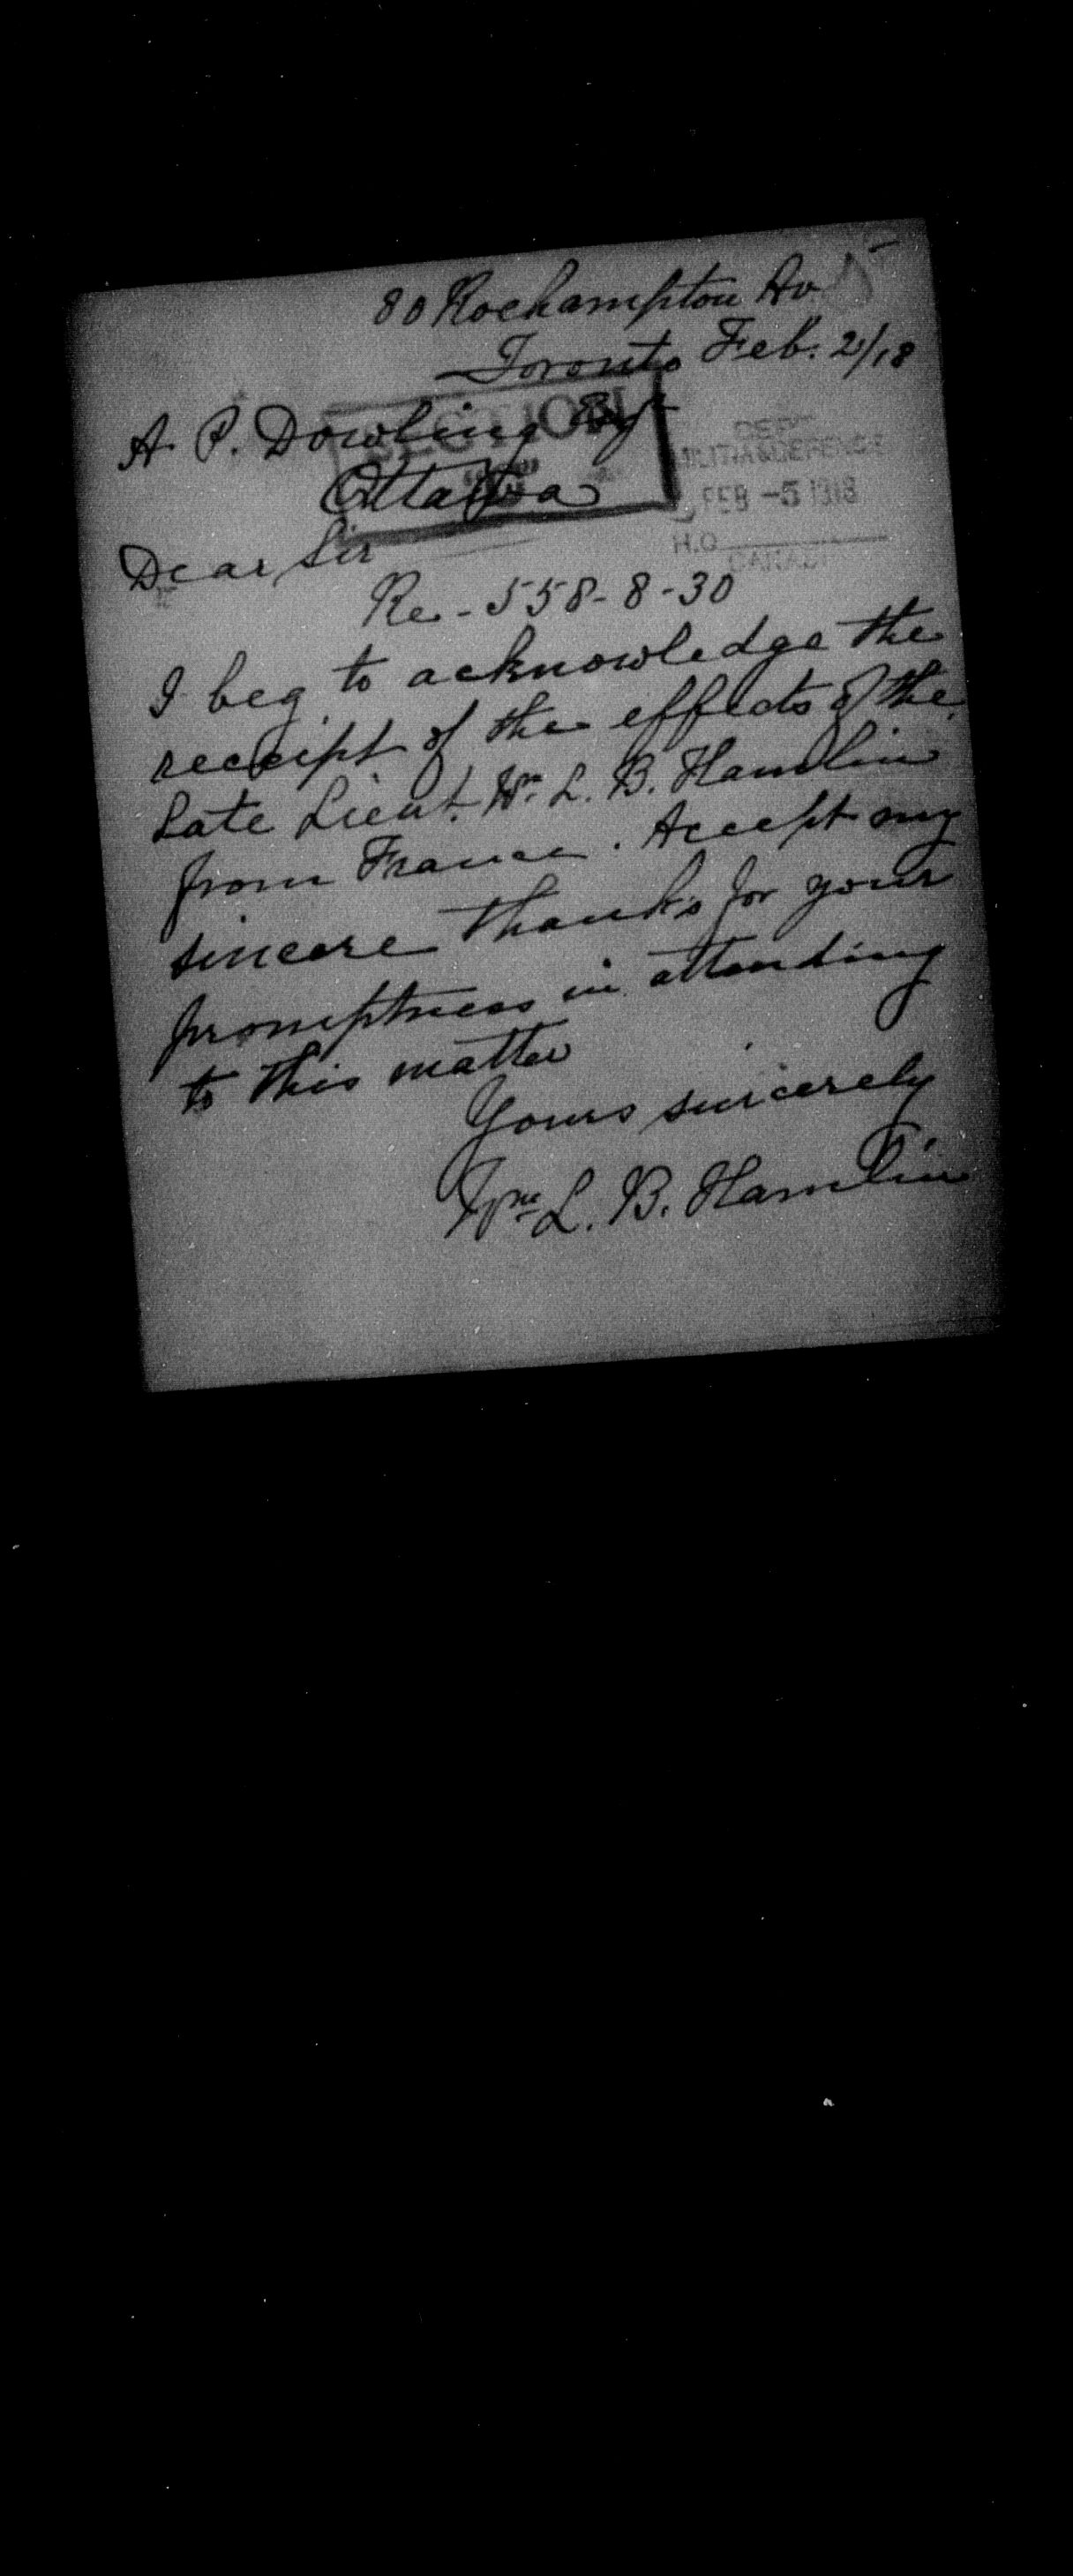 80 Roehampton Av
Toronto Feb. 2/18
A. P. Dowling Esq
SECTION
Ottawa
DEPT
MILITIA & DEFENCE
FEB -5 1918
H.Q.
CANADA
Dear Sir
Re - 558-8-30
I beg to acknowledge the
receipt of the effects of the
late Lieut. Wm L. B. Hamlin
from France. Accept my
sincere thanks for your
promptness in attending
to this matter
Yours sincerely
Wm L. B. Hamlin